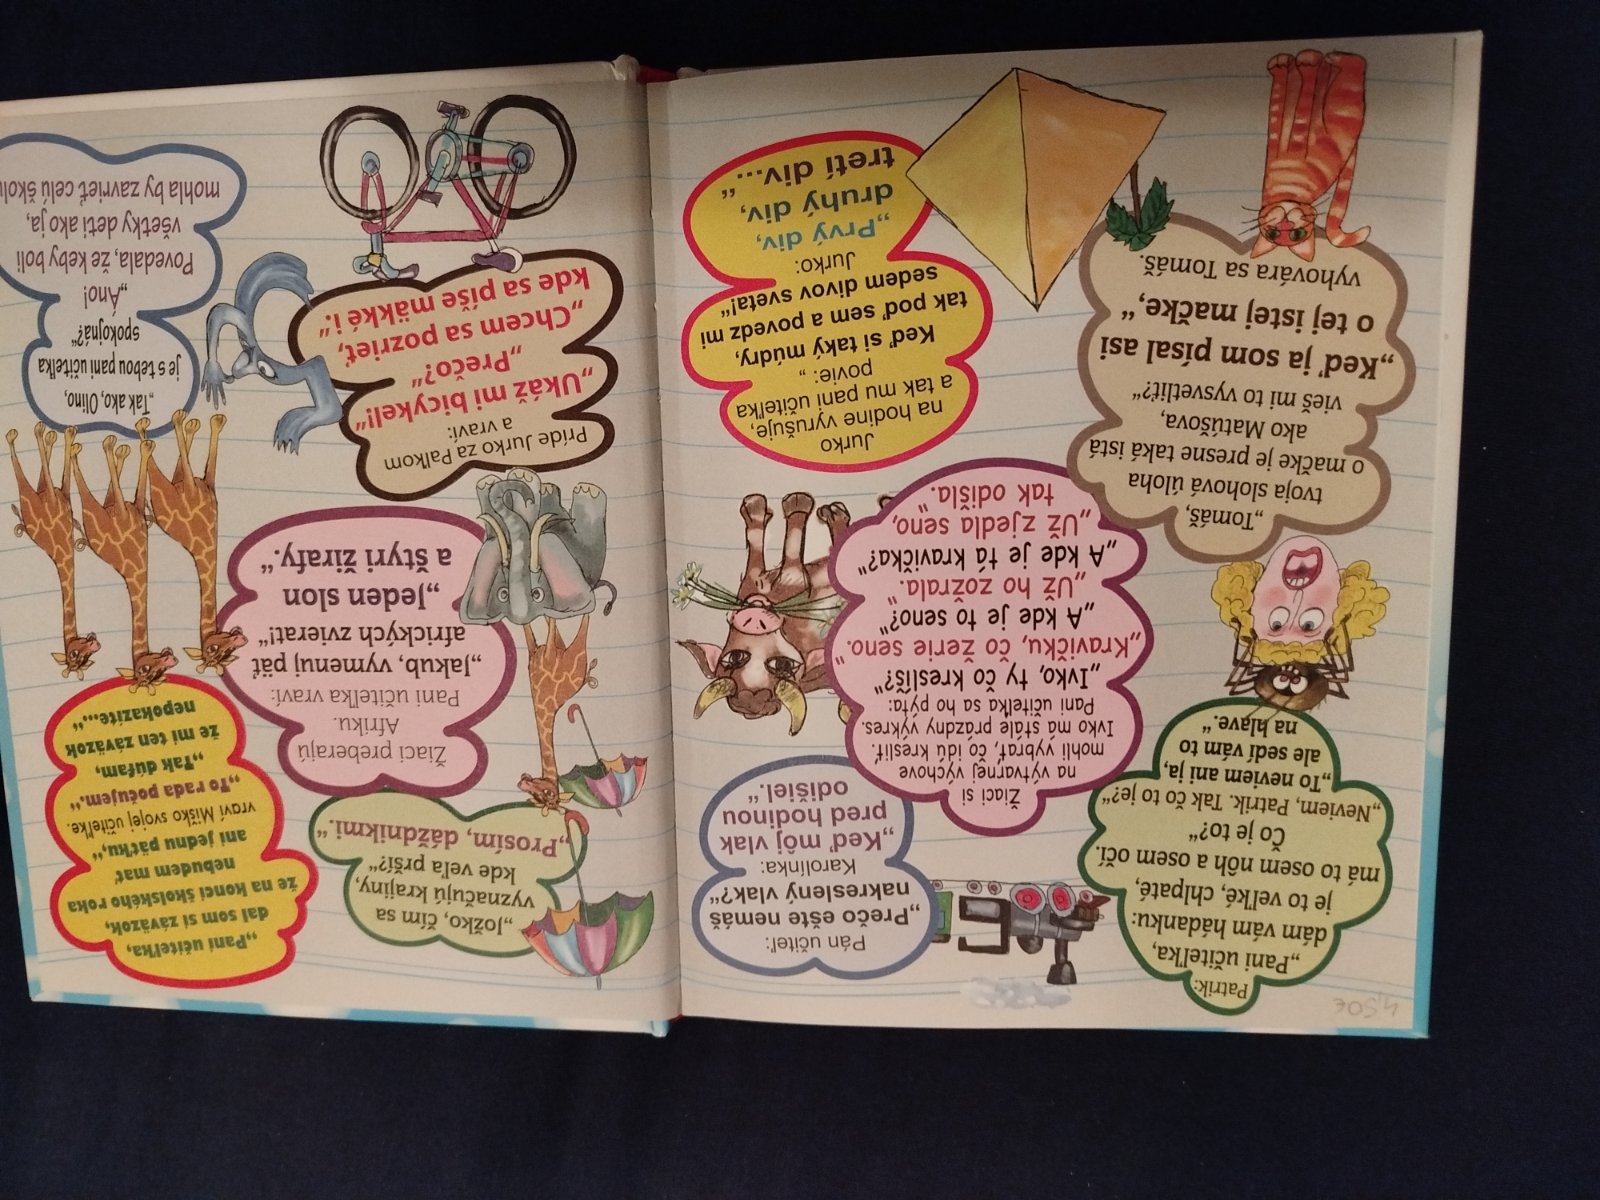 4,50€
Patrik:
„Pani učiteľka,
dám vám hádanku:
je to veľké, chlpaté,
má to osem nôh a osem očí.
Čo je to?“
„Neviem, Patrik. Tak čo to je?“
„To neviem ani ja,
ale sedí vám to
na hlave.“
Pán učiteľ:
„Prečo ešte nemáš
nakreslený vlak?“
Karolínka:
„Keď môj vlak
pred hodinou
odišiel.“
Žiaci si
na výtvarnej výchove
mohli vybrať, čo idú kresliť.
Ivko má stále prázdny výkres.
Pani učiteľka sa ho pýta:
„Ivko, ty čo kreslíš?“
„Kravičku, čo žerie seno.“
„A kde je to seno?“
„Už ho zožrala.“
„A kde je tá kravička?“
„Už zjedla seno,
tak odišla.“
„Tomáš,
tvoja slohová úloha
o mačke je presne taká istá
ako Matúšova,
vieš mi to vysvetliť?“
„Keď ja som písal asi
o tej istej mačke,“
vyhovára sa Tomáš.
Jurko
na hodine vyrušuje,
a tak mu pani učiteľka
povie: „
Keď si taký múdry,
tak poď sem a povedz mi
sedem divov sveta!“
Jurko:
„Prvý div,
druhý div,
tretí div...“
„Jožko, čím sa
vyznačujú krajiny,
kde veľa prší?“
„Prosím, dáždnikmi.“
„Pani učiteľka,
dal som si záväzok,
že na konci školského roka
nebudem mať
ani jednu päťku,“
vraví Miško svojej učiteľke.
„To rada počujem.“
„Tak dúfam,
že mi ten záväzok
nepokazíte...“
Žiaci preberajú
Afriku.
Pani učiteľka vraví:
„Jakub, vymenuj päť
afrických zvierat!“
„Jeden slon
a štyri žirafy.“
Príde Jurko za Paľkom
a vraví:
„Ukáž mi bicykel!“
„Prečo?“
„Chcem sa pozrieť,
kde sa píše mäkké i.“
„Tak ako, Olino,
je s tebou pani učiteľka
spokojná?“
„Áno!
Povedala, že keby boli
všetky deti ako ja,
mohla by zavrieť celú školu